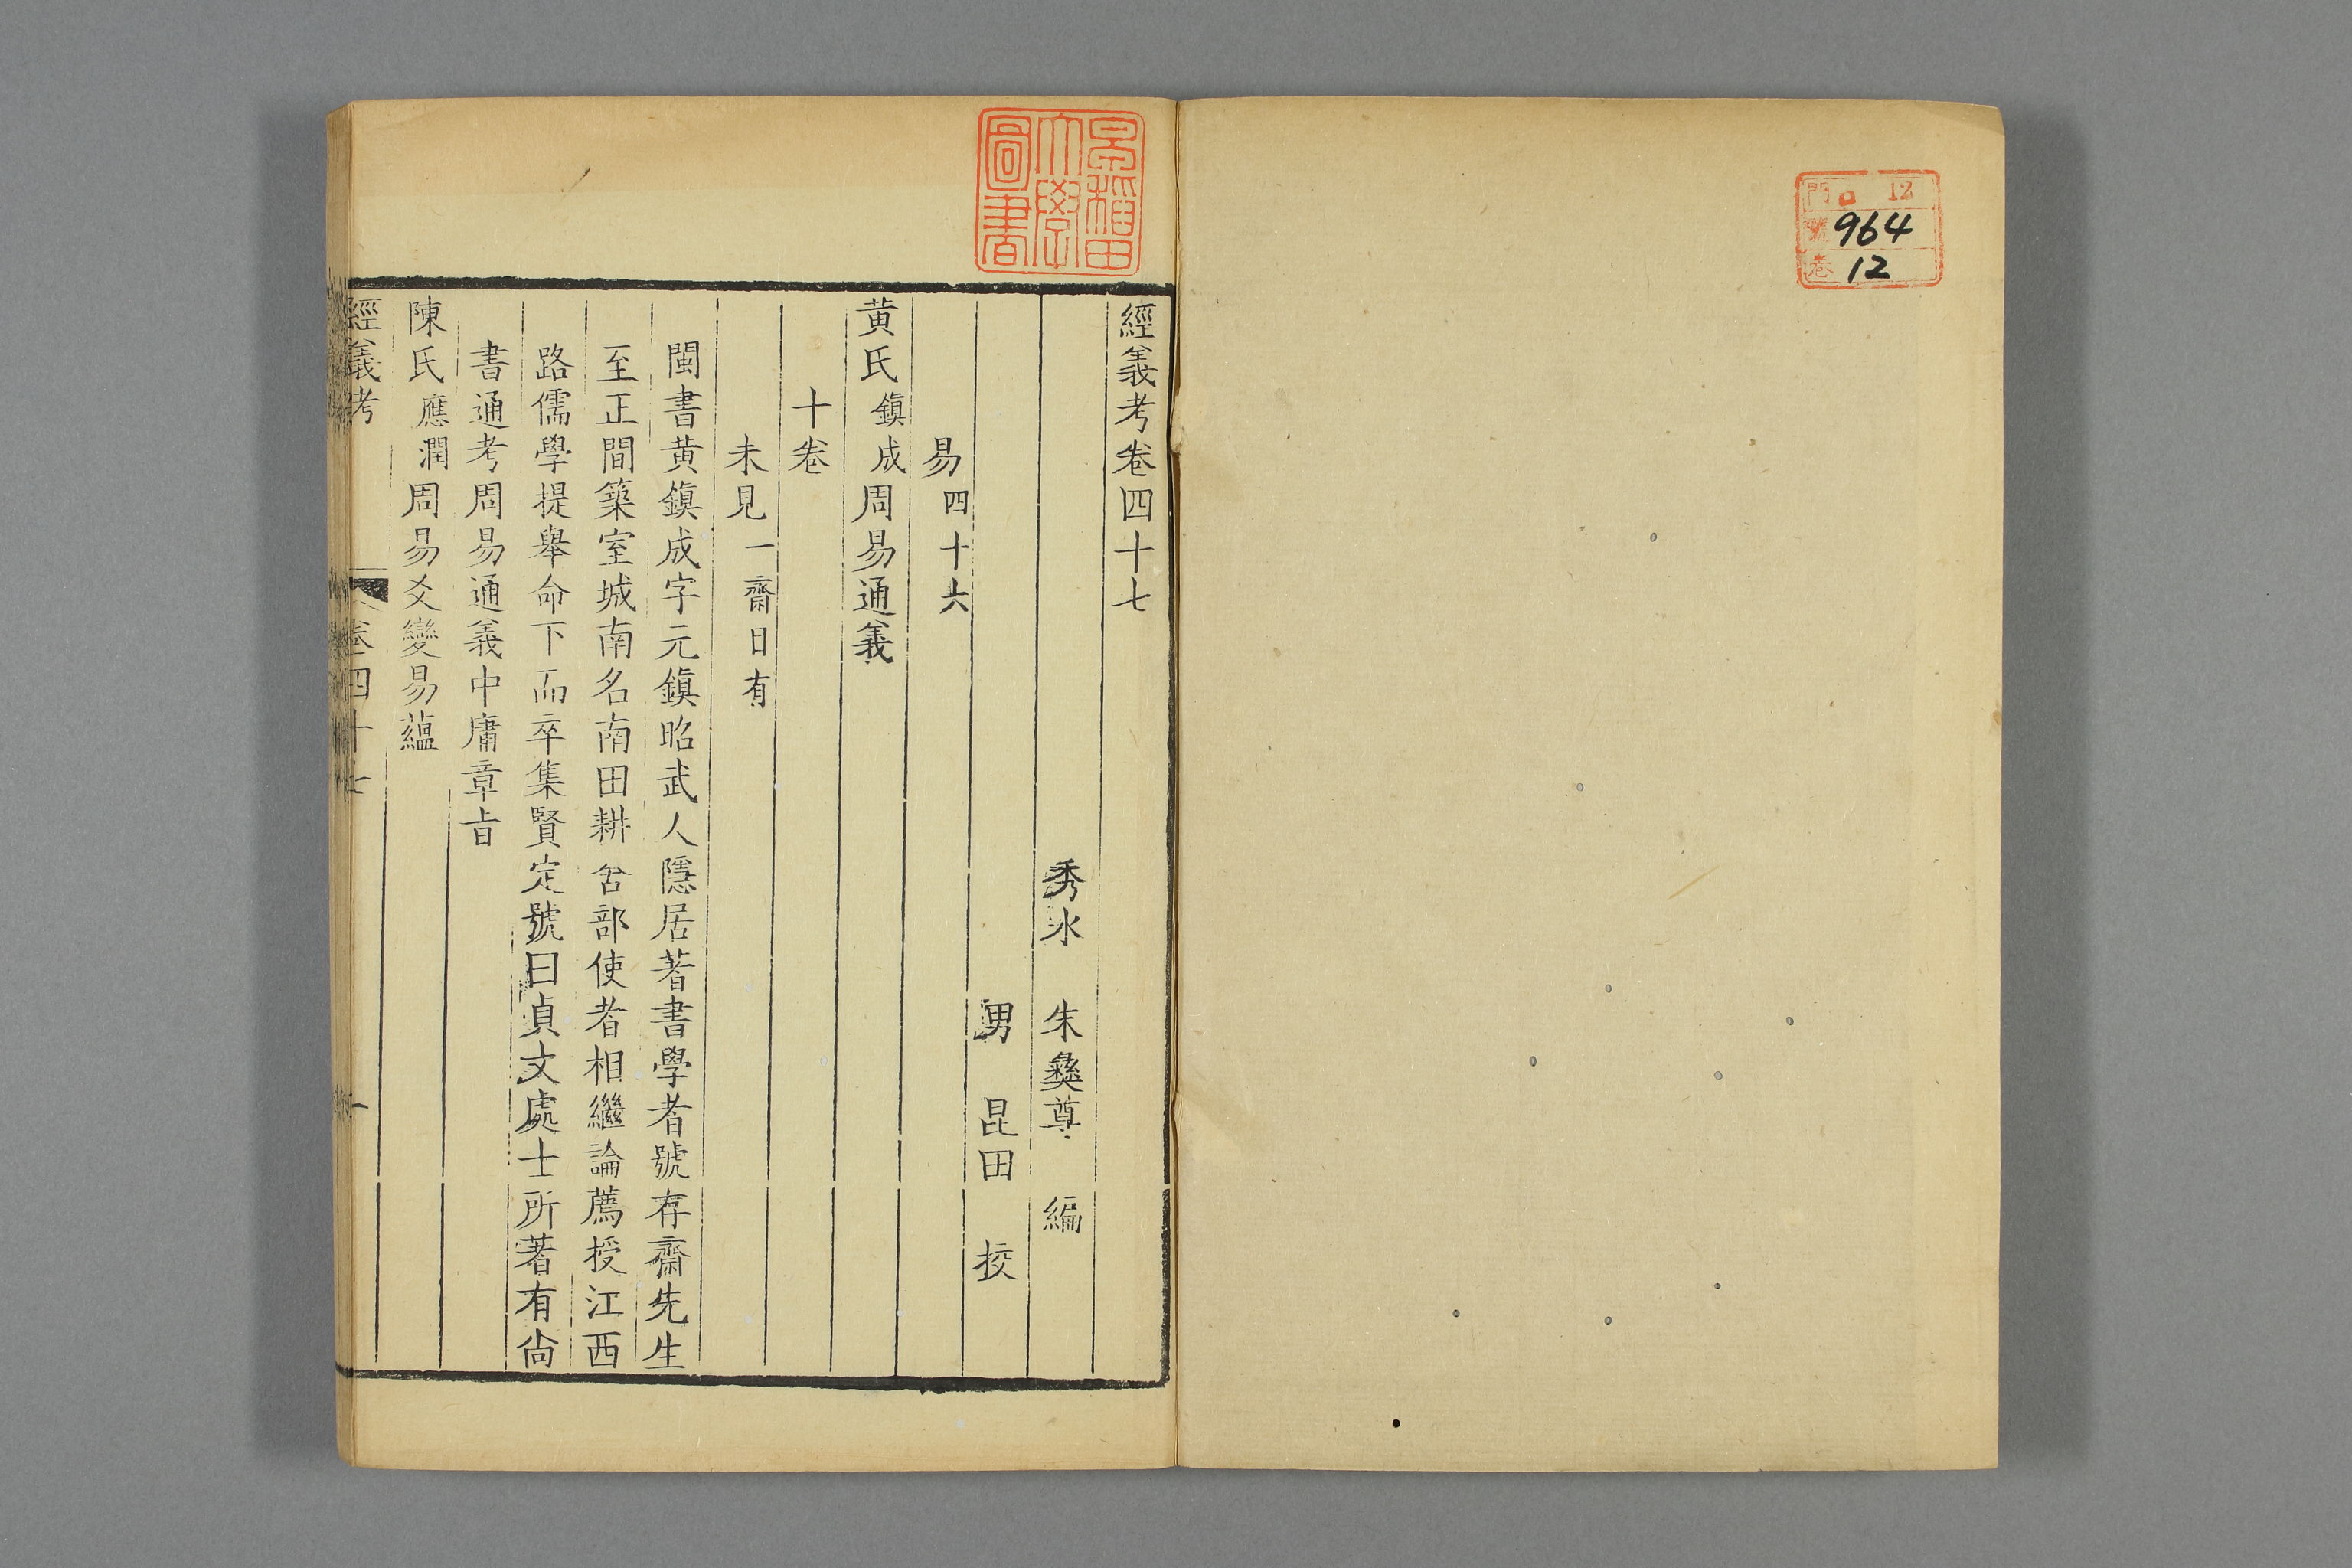 門 ロ 12
號 964
卷 12
早稲田
大學
圖書
經義考卷四十七
秀水 朱彝尊 編
男 昆田 挍
易四十六
黃氏鎭成周易通義
十卷
未見一齋目有
閩書黃鎭成字元鎭昭武人隱居著書學者號存齋先生
至正間築室城南名南田耕舍部使者相繼論薦授江西
路儒學提舉命下而卒集賢定號曰貞文處士所著有尙
書通考周易通義中庸章旨
陳氏應潤周易爻變易蘊
經義考 卷四十七 一